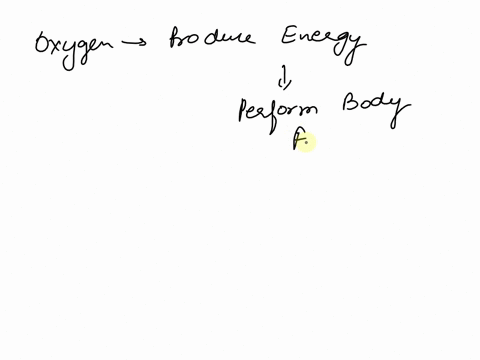 Oxygen → Produce Energy
↓
Perform Body
F